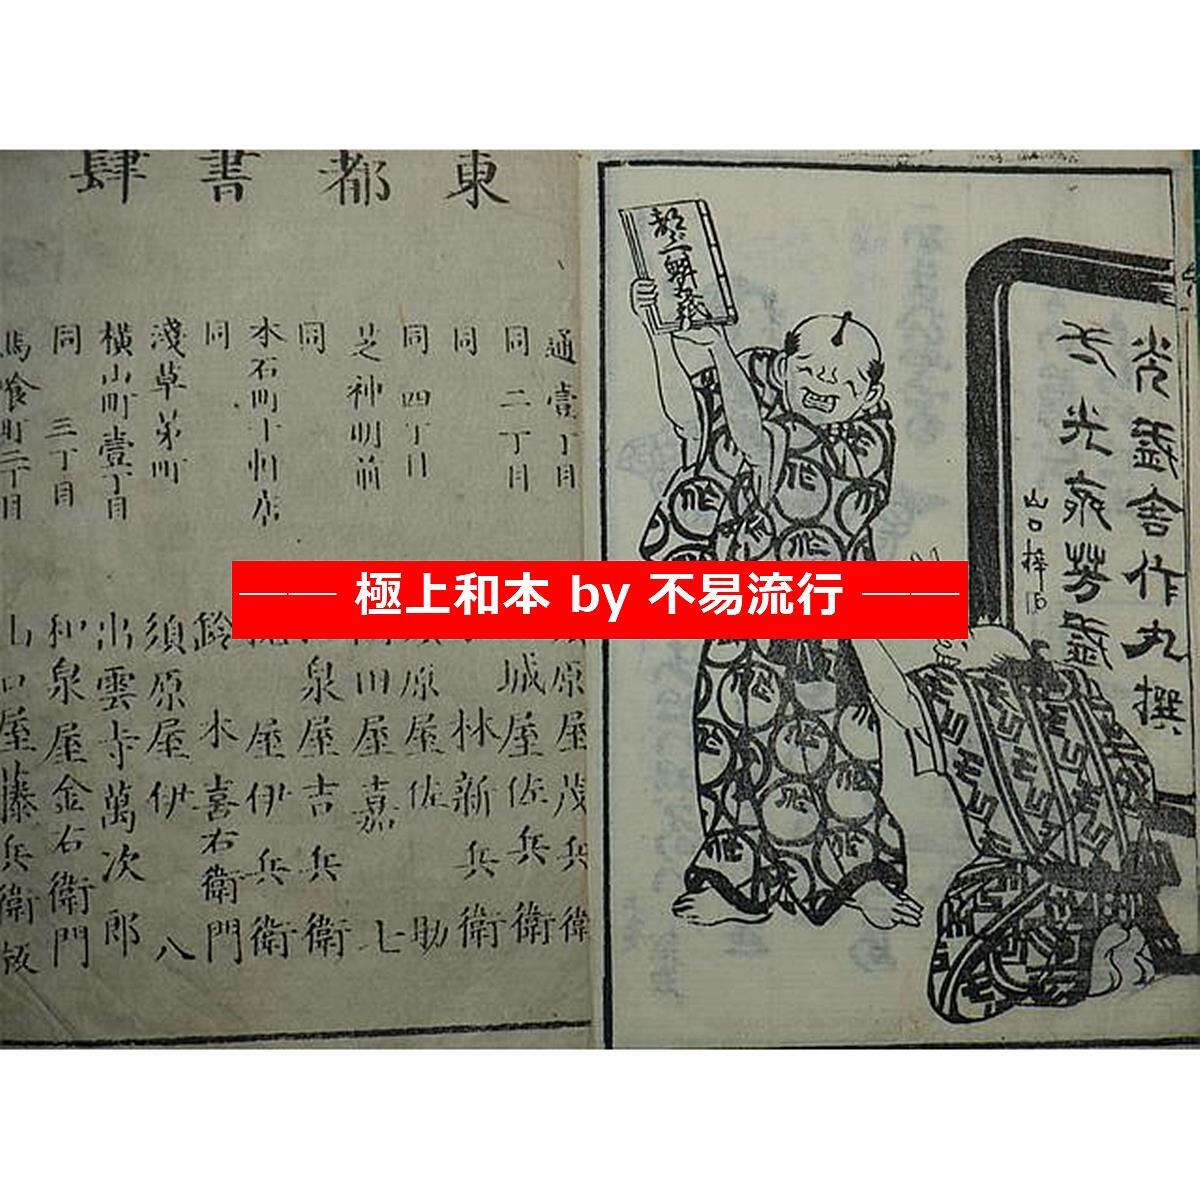 東都書肆
通壹丁目 須原屋茂兵衛
同 二丁目 山城屋佐兵衛
同 林新兵衛
同 四丁目 須原屋佐助
芝神明前 岡田屋嘉七
同 和泉屋吉兵衛
本石町十軒店 屋伊兵衛
同 鈴木喜右衛門
淺草茅町 須原屋伊八
横山町壹丁目 出雲寺萬次郎
同 三丁目 和泉屋金右衛門
馬喰町二丁目 山口屋藤兵衛版
作丸撰
芳盛
山口梓
極上和本 by 不易流行